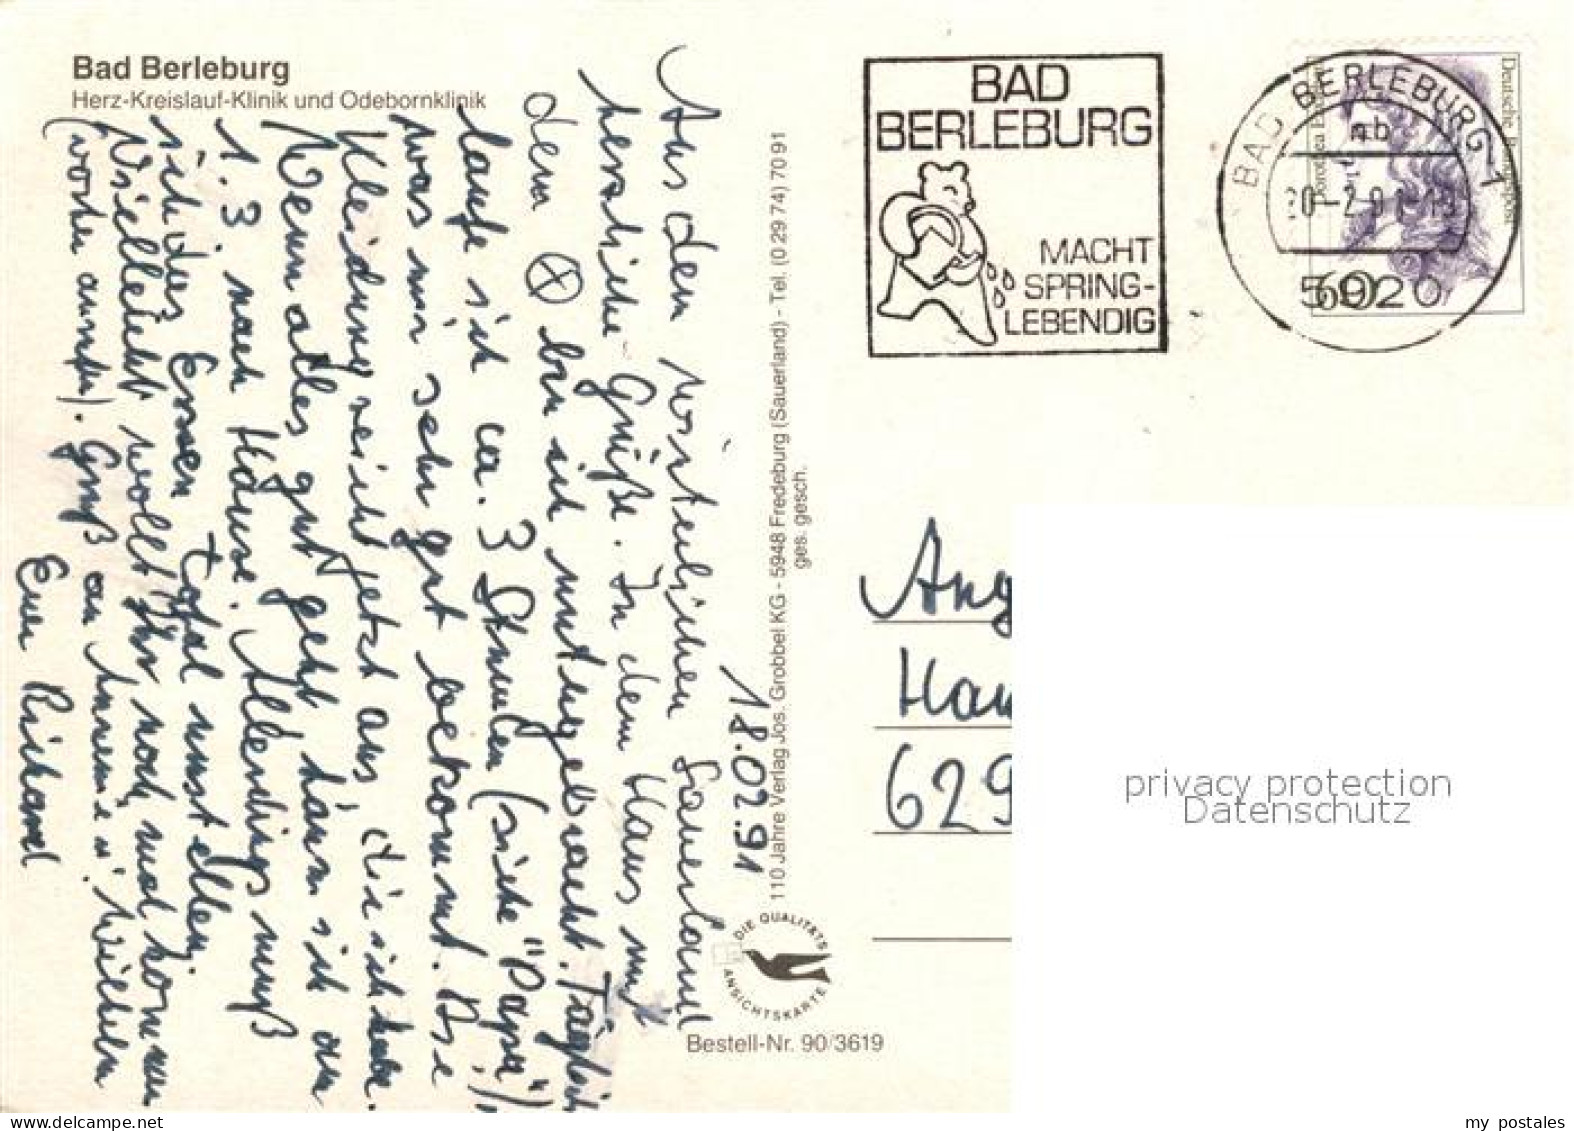 Bad Berleburg
Herz-Kreislauf-Klinik und Odebornklinik
18.02.91
Aus dem winterlichen Sauerland
herzliche Grüße. In dem Haus mit
dem ⊗ bin ich untergebracht. Täglich
laufe ich ca. 3 Stunden (siehe "Papa"),
was mir sehr gut bekommt. Die
Kleidung reicht jetzt aus, die ich habe.
Wenn alles gut geht kann ich am
1.3 nach Hause. Allerdings muß
ich das Essen total umstellen.
Vielleicht wollt Ihr noch mal kommen
(vorher anrufen). Gruß an Wilhelm
Euer Richard
110 Jahre Verlag Jos. Grobbel KG - 5948 Fredeburg (Sauerland) - Tel. (0 29 74) 70 91
ges. gesch.
DIE QUALITÄTS
ANSICHTSKARTE
Bestell-Nr. 90/3619
BAD
BERLEBURG
MACHT
SPRING-
LEBENDIG
BAD BERLEBURG 1
nb
5920
Deutsche Bundespost
60
Ang
Hau
629
privacy protection
Datenschutz
www.delcampe.net
my postales